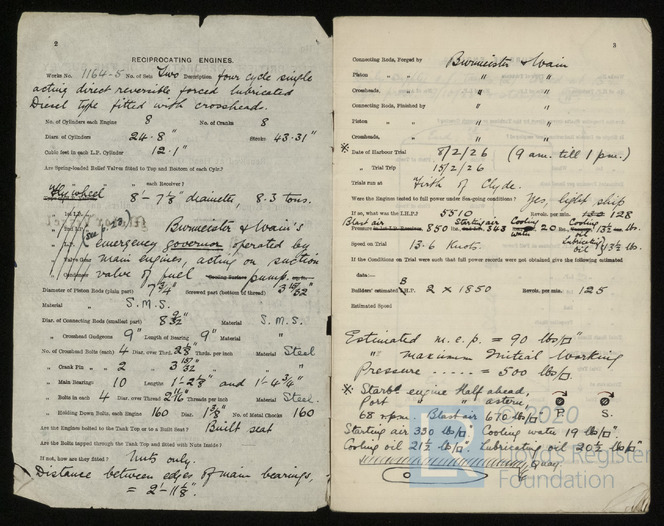 2
RECIPROCATING ENGINES.
Works No. 1164-5 No. of Sets Two Description four cycle single
acting direct reversible forced lubricated
Diesel type fitted with crosshead.
No. of Cylinders each Engine 8 No. of Cranks 8
Diams. of Cylinders 24.8" Stroke 43.31"
Cubic feet in each L.P. Cylinder 12.1"
Are Spring-loaded Relief Valves fitted to Top and Bottom of each Cylr?
" each Receiver?
Flywheel 8'- 7⅛" diameter, 8.3 tons.
(See p. 23) Burmeister & Wain's
emergency governor operated by
main engines, acting on suction
valve of fuel pump.
Diameter of Piston Rods (plain part) 7¾" Screwed part (bottom of thread)
Material S.M.S.
Diar. of Connecting Rods (smallest part) Material S.M.S.
" Crosshead Gudgeons 9" Length of Bearing 9" Material "
No. of Crosshead Bolts (each) 4 Diar. over Thrd. 2⅞" Thrds. per inch Material Steel
" Crank Pin " " 2 " "
" Main Bearings 10 Lengths 1'-2⅞" and 1'-4¾"
" Bolts in each 4 Diar. over Thread Threads per inch Material Steel.
" Holding Down Bolts, each Engine 160 Diar. 1⅜" No. of Metal Chocks 160
Are the Engines bolted to the Tank Top or to a Built Seat? Built seat
Are the Bolts tapped through the Tank Top and fitted with Nuts Inside?
If not, how are they fitted? Nuts only.
Distance between edges of main bearings,
= 2'-11⅛".
3
Connecting Rods, Forged by Burmeister & Wain
Piston " " "
Crossheads, " " "
Connecting Rods, Finished by " "
Piston " " "
Crossheads, " " "
* Date of Harbour Trial 8/2/26 (9 am. till 1 pm.)
" Trial Trip 15/2/26
Trials run at Firth of Clyde.
Were the Engines tested to full power under Sea-going conditions? Yes, light ship
If so, what was the I.H.P.? 5510 Revols. per min. 128
Blast air Starting air Cooling water Cooling oil
Pressure 850 lbs. 343 20 lbs. 13½ lbs.
Lubricating oil 13½ lbs.
Speed on Trial 13.6 Knots.
If the Conditions on Trial were such that full power records were not obtained give the following estimated
data:—
Builders' estimated B.H.P. 2 x 1850 Revols. per min. 125
Estimated Speed
Estimated m.e.p. = 90 lbs/□"
" maximum initial working
Pressure ..... = 500 lbs/□"
* Starbd. engine Half ahead,
Port " " astern,
P. S.
68 r.p.m. Blast air 670 lbs/□"
Starting air 350 lbs/□" Cooling water 19 lbs/□"
Cooling oil 21½ lbs/□" Lubricating oil 20½ lbs/□"
Quay
© 2020
Lloyd's Register
Foundation